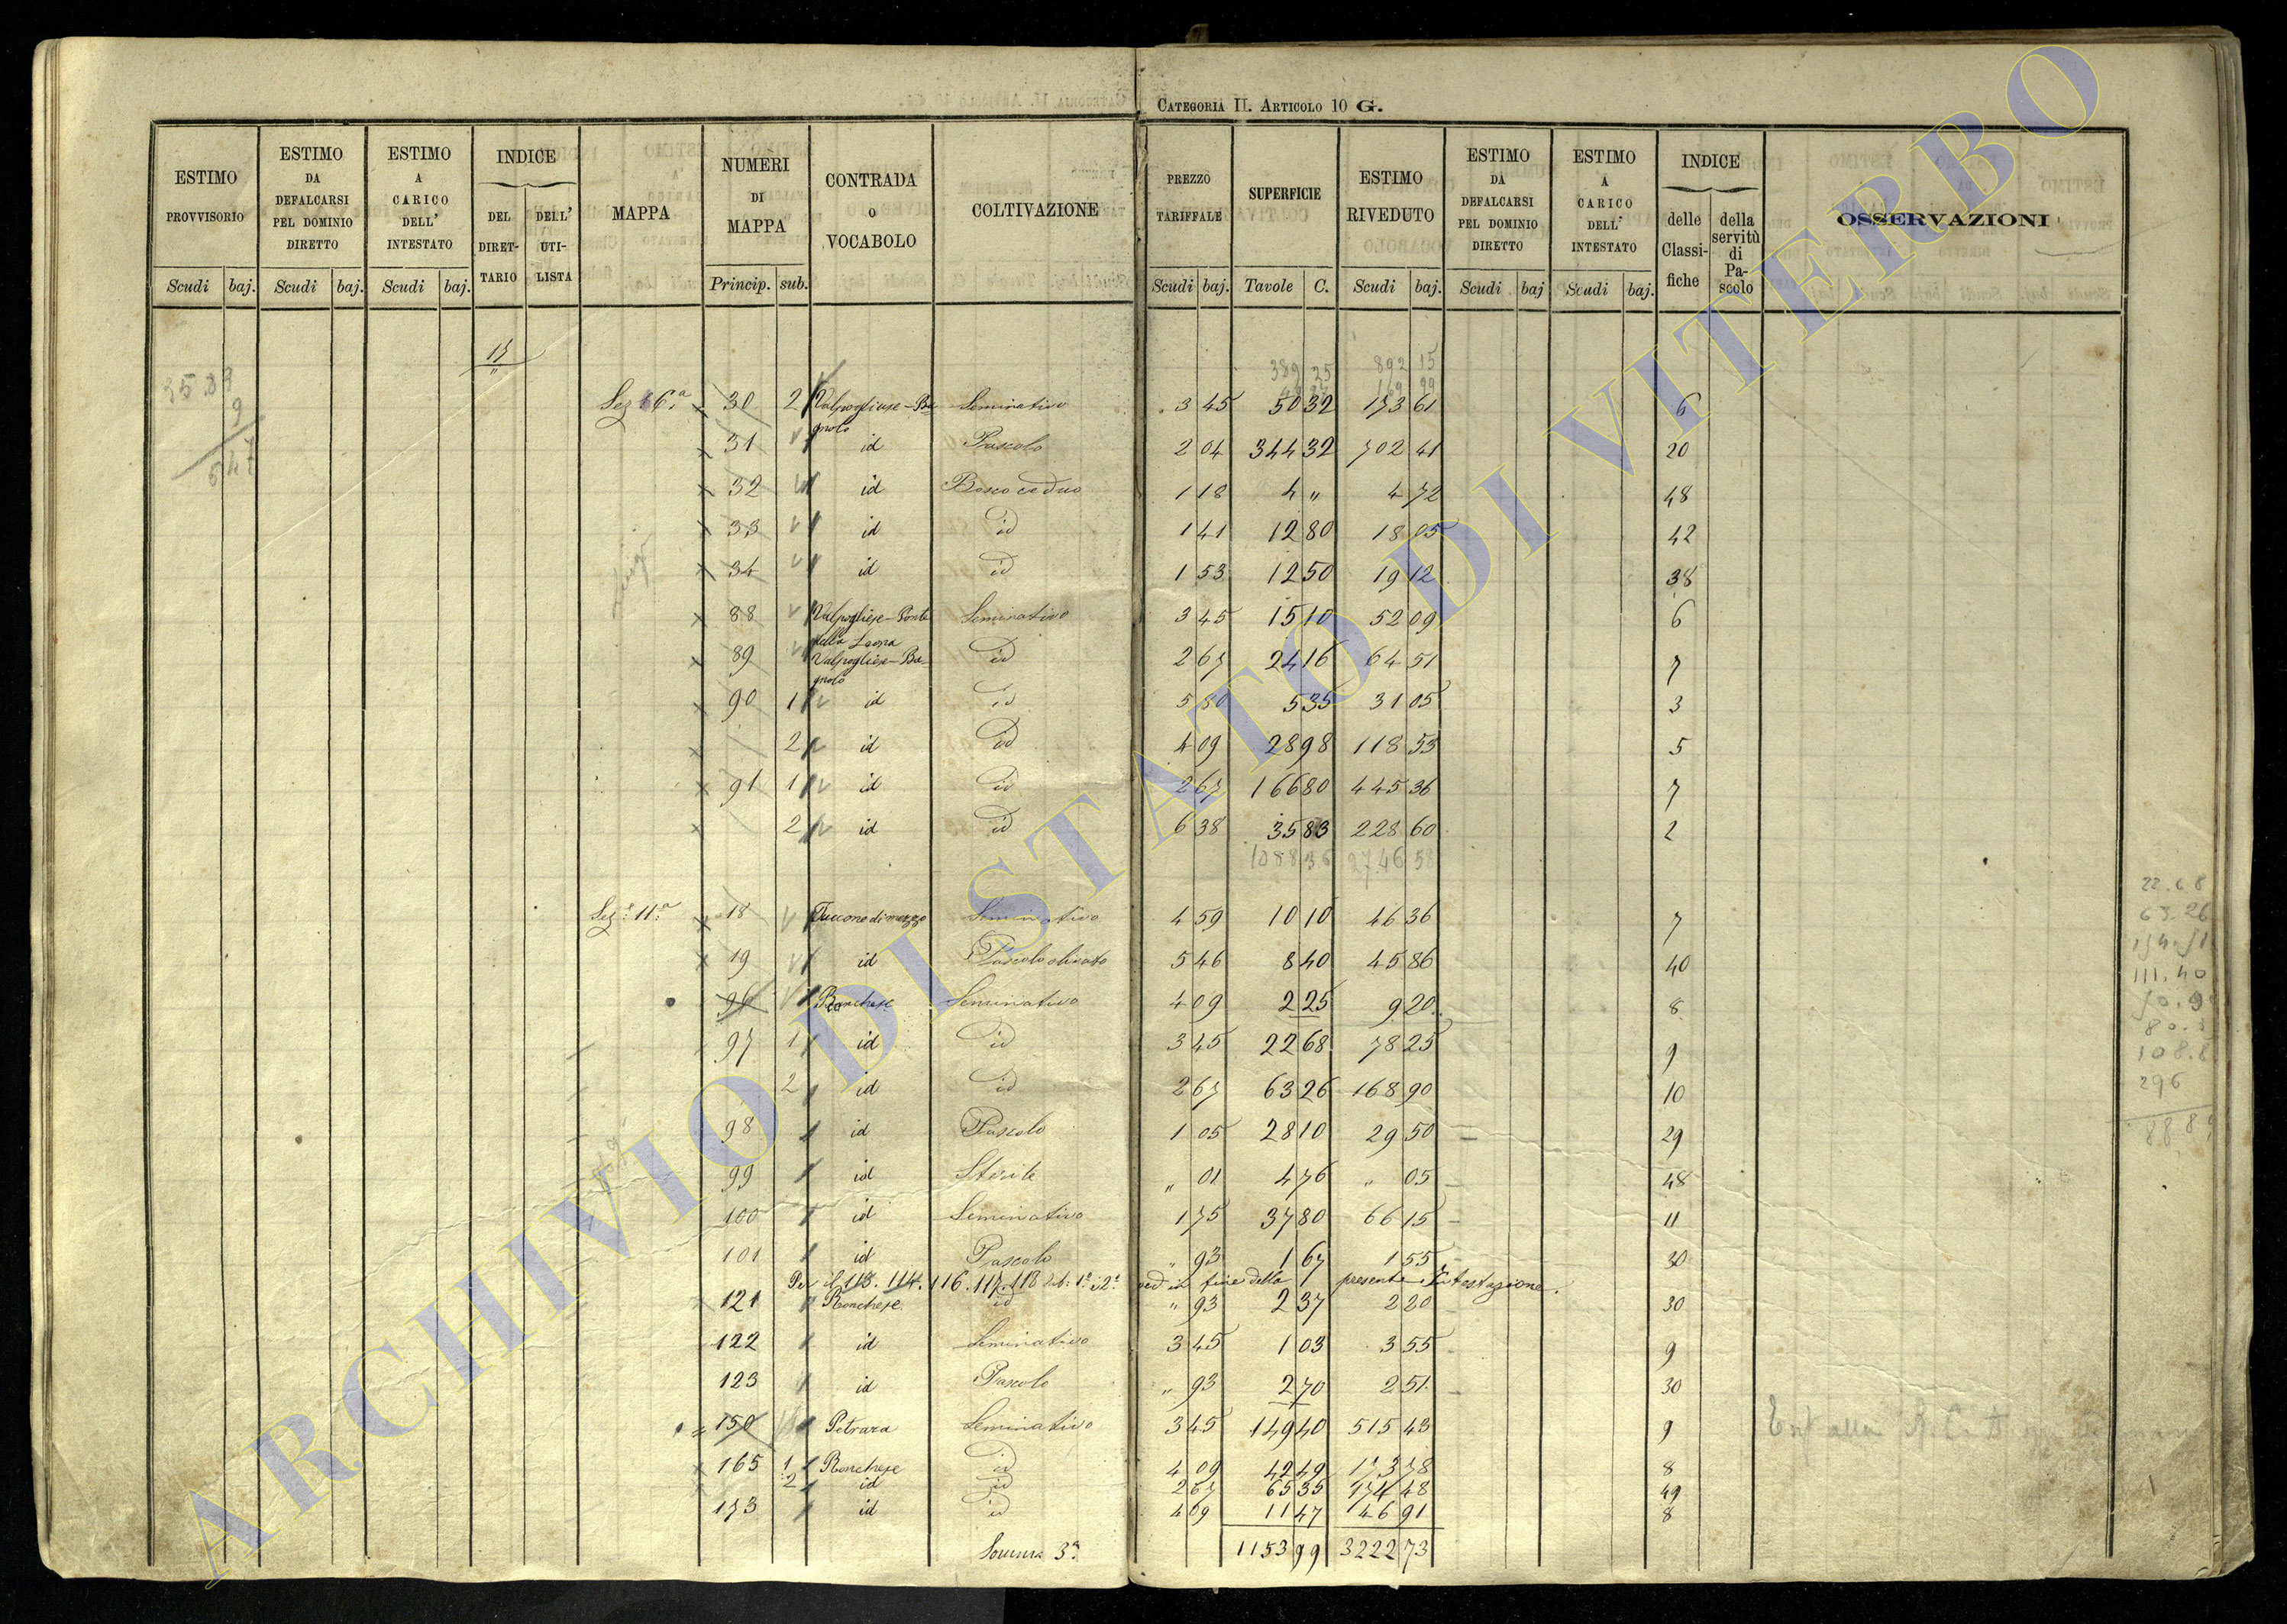 Categoria II. Articolo 10 G.
ESTIMO PROVVISORIO | ESTIMO DA DEFALCARSI PEL DOMINIO DIRETTO | ESTIMO A CARICO DELL' INTESTATO | INDICE | MAPPA | NUMERI DI MAPPA | CONTRADA O VOCABOLO | COLTIVAZIONE | PREZZO TARIFFALE | SUPERFICIE | ESTIMO RIVEDUTO | ESTIMO DA DEFALCARSI PEL DOMINIO DIRETTO | ESTIMO A CARICO DELL' INTESTATO | INDICE | OSSERVAZIONI
DEL DIRETTARIO | DELL' UTILISTA | delle Classifiche | della servitù di Pascolo
Scudi baj. | Scudi baj. | Scudi baj. | Princip. sub. | Scudi baj. | Tavole C. | Scudi baj. | Scudi baj | Scudi baj.
17
389 25 892 15
169 99
Sez 16.a 30 2 Valpogliese-Bagnolo Seminativo 3 45 50 32 173 61 6
31 id Pascolo 2 04 344 32 702 41 20
32 id Bosco ceduo 1 18 4 " 4 72 48
33 id id 1 41 12 80 18 05 42
34 id id 1 53 12 50 19 12 38
88 Valpogliese-Ponte della Seminativo 3 45 15 10 52 09 6
89 Valpogliese-Bagnolo id 2 67 24 16 64 51 7
90 1 id id 5 80 5 35 31 05 3
2 id id 4 09 28 98 118 53 5
91 1 id id 2 67 166 80 445 36 7
2 id id 6 38 35 83 228 60 2
1088 36 2746 58
Sez.e 11.a 18 Tuccone di mezzo Seminativo 4 59 10 10 46 36 7
19 id Pascolo olivato 5 46 8 40 45 86 40
96 Ronchese Seminativo 4 09 2 25 9 20 8
97 1 id id 3 45 22 68 78 25 9
2 id id 2 67 63 26 168 90 10
98 id Pascolo 1 05 28 10 29 50 29
99 id Sterile " 01 4 76 " 05 48
100 id Seminativo 1 75 37 80 66 15 11
101 id Pascolo " 93 1 67 1 55 30
Per il 113. 114. 116. 117. 118 sub: 1.° e 2.° ved in fine della presente Intestazione.
121 Ronchese id " 93 2 37 2 20 30
122 id Seminativo 3 45 1 03 3 55 9
123 id Pascolo " 93 2 70 2 51 30
150 Petrara Seminativo 3 45 149 40 515 43 9
165 1 Ronchese id 4 09 42 49 173 78 8
2 id id 2 67 65 35 174 48 49
173 id id 4 09 11 47 46 91 8
Somma 3.a 1153 99 3222 73
63.26
111.40
296
ARCHIVIO DI STATO DI VITERBO